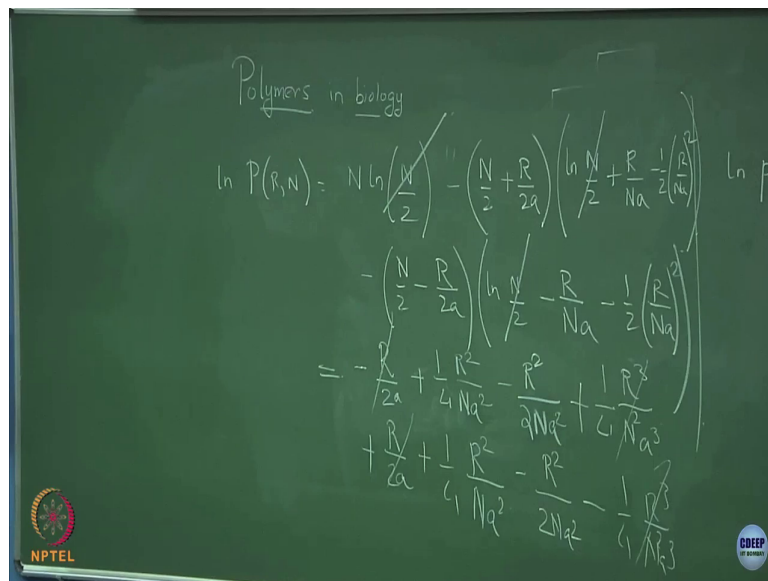 Polymers in biology
ln P(R,N) = N ln(N/2) - (N/2 + R/2a)(ln N/2 + R/Na - 1/2(R/Na)^2) ln p
- (N/2 - R/2a)(ln N/2 - R/Na - 1/2(R/Na)^2)
= - R/2a + 1/4 R^2/Na^2 - R^2/2Na^2 + 1/4 R^3/N^2a^3
+ R/2a + 1/4 R^2/Na^2 - R^2/2Na^2 - 1/4 R^3/N^2a^3
NPTEL
CDEEP
IIT BOMBAY